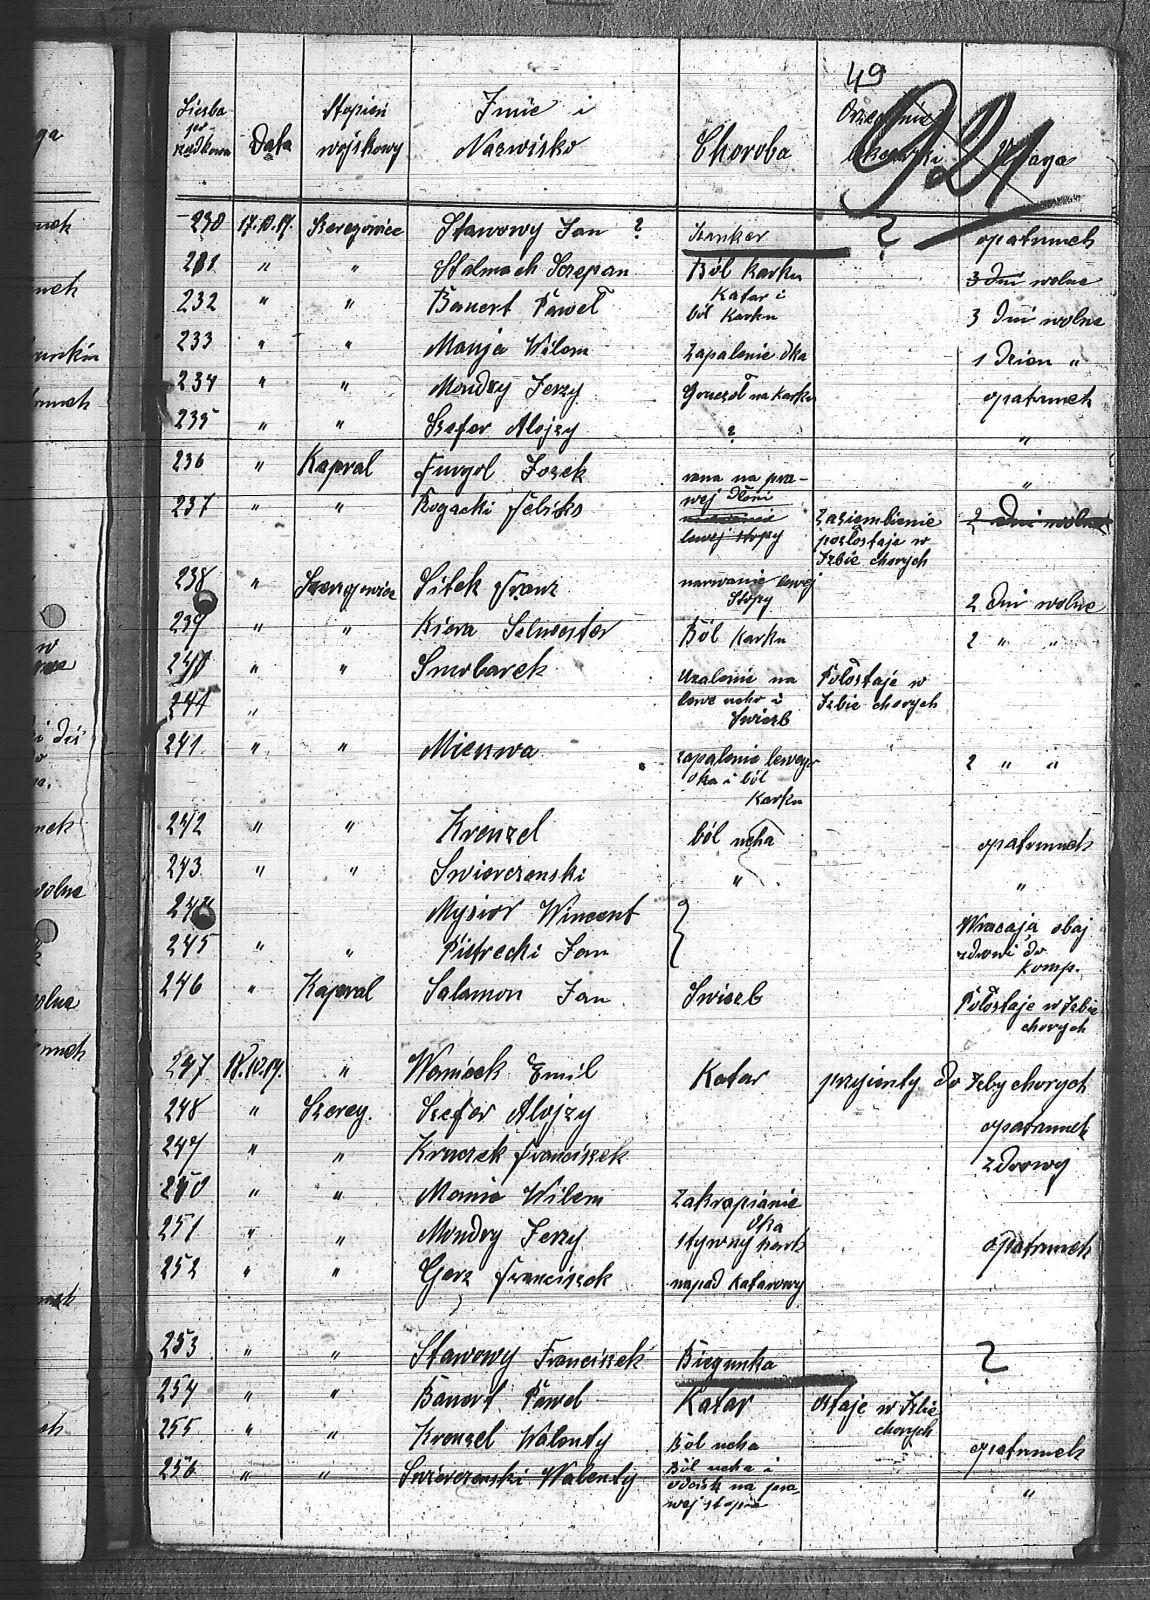 49
921
Liczba po- Data Stopień Imie i Choroba Orzeczenie Uwaga
rządkowa wojskowy Nazwisko lekarski
230 17.10.19. Szeregowiec Stawowy Jan ? Szanker ? opatrunek
231 " " Stalmach Szczepan Ból karku 3 dni wolne
232 " " Banert Paweł Katar i
ból karku 3 dni wolne
233 " " Manja Wilem Zapalenie oka 1 dzien "
234 " " Mondry Jerzy Gruczoł na karku opatrunek
235 " " Szefer Alojzy ? "
236 " Kapral Furgol Jozek rana na pra- "
wej dłoni
237 " " Rogacki Feliks lewej stopy Zaziembienie 2 dni wolne
pozostaje w
Izbie chorych
238 " Szeregowiec Sitek Franz narwanie lewej
stopy 2 dni wolne
239 " " Kiera Selwester Ból karku 2 " "
240 " " Smolarek Uzalenie na Pozostaje w
244 " lewe ucho i Izbie chorych
Swiezb
241 " " Mierzwa zapalenie lewego 2 " "
oka i ból
karku
242 " " Krenzel ból ucha opatrunek
243 " " Swierczenski " "
244 Mysior Wincent Wracają obaj
245 " " Pietrecki Jan zdrowi do
komp.
246 " Kapral Salamon Jan Swiezb Pozostaje w Izbie
chorych
247 18.10.19. " Waniock Emil Katar przyienty do Izby chorych
248 " Szereg. Szefer Alojzy opatrunek
249 " " Kruczek Franciszek zdrowy
250 " " Mania Wilem Zakrapianie
oka
251 " " Mondry Jerzy stywny kark opatrunek
252 " " Gorz Franciszek napad katarowy
253 " " Stawowy Franciszek Biegunka ?
254 " " Banert Paweł Katar ostaje w Izbie
chorych
255 " " Krenzel Walenty Ból ucha opatrunek
256 " " Swierczenski Walenty Ból ucha i "
odcisk na pra-
wej stopie